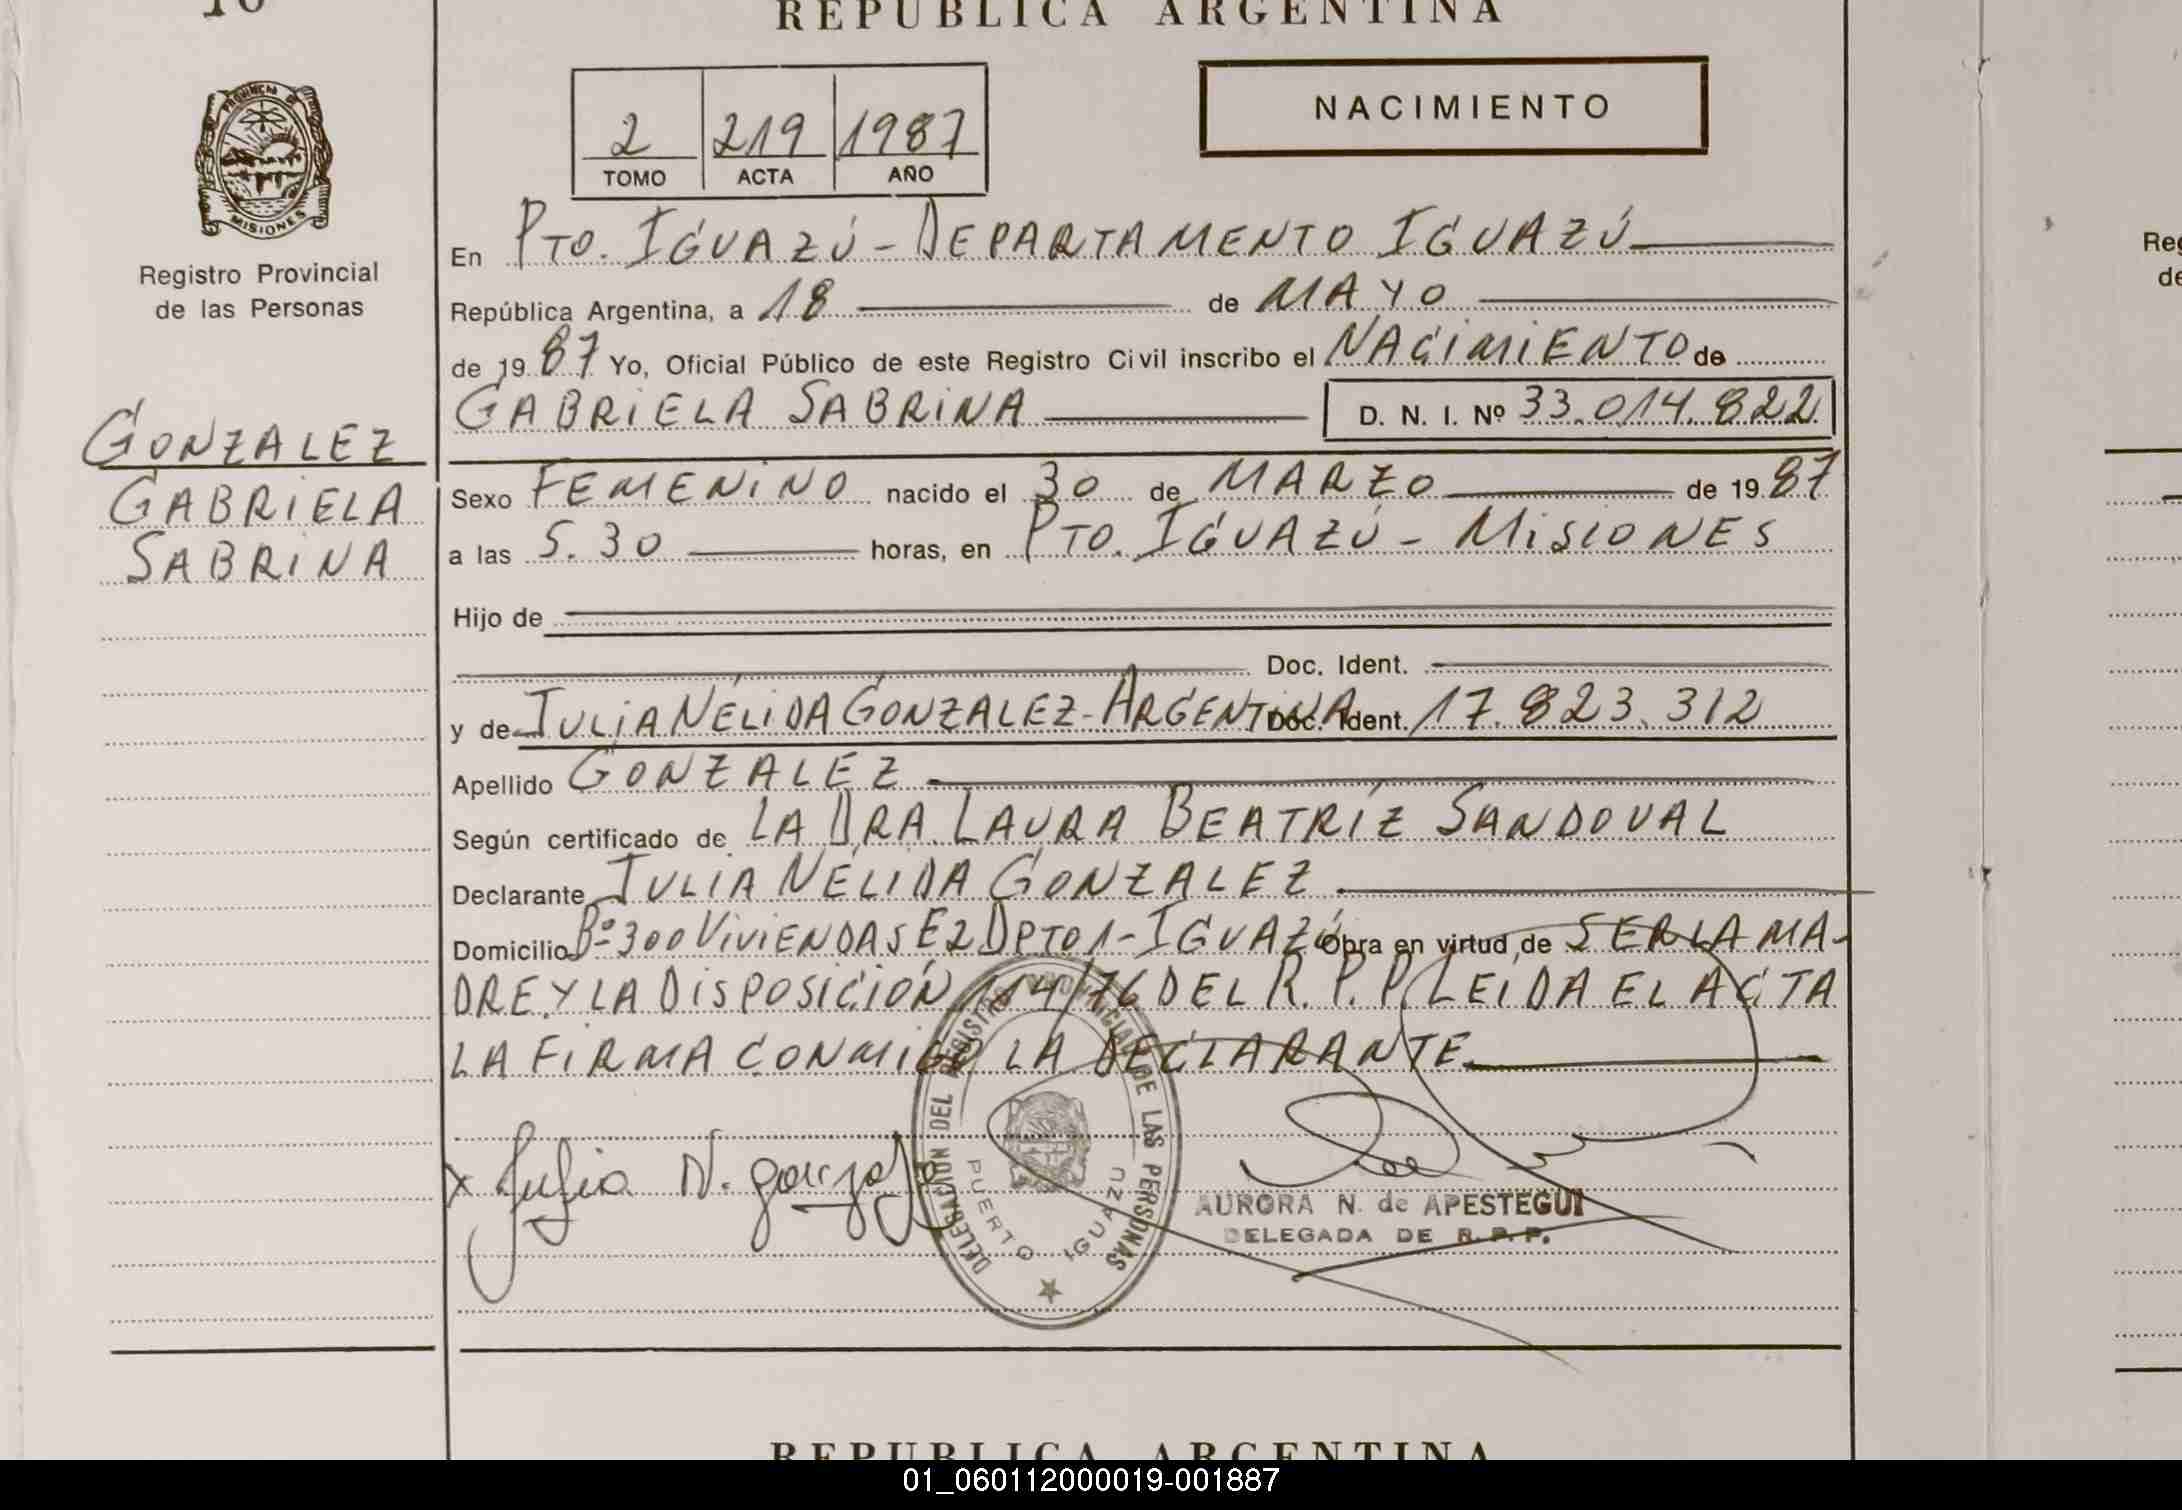 REPUBLICA ARGENTINA
PROVINCIA DE
MISIONES
Registro Provincial
de las Personas
GONZALEZ
GABRIELA
SABRINA
2 219 1987
TOMO ACTA AÑO
NACIMIENTO
En PTO. IGUAZÚ - DEPARTAMENTO IGUAZÚ
República Argentina, a 18 de MAYO
de 19 87 Yo, Oficial Público de este Registro Civil inscribo el NACIMIENTO de
GABRIELA SABRINA D. N. I. Nº 33.014.822
Sexo FEMENINO nacido el 30 de MARZO de 19 87
a las 5.30 horas, en PTO. IGUAZÚ - MISIONES
Hijo de
Doc. Ident.
y de JULIA NÉLIDA GONZALEZ - ARGENTINA Doc. Ident. 17.823.312
Apellido GONZALEZ
Según certificado de LA DRA. LAURA BEATRÍZ SANDOVAL
Declarante JULIA NÉLIDA GONZALEZ
Domicilio Bº 300 VIVIENDAS E2 DPTO 1 - IGUAZÚ Obra en virtud de SER LA MA-
DRE Y LA DISPOSICIÓN 114/76 DEL R. P. P. LEÍDA EL ACTA
LA FIRMA CONMIGO LA DECLARANTE
x Julia N. Gonzalez
DELEGACION DEL REGISTRO PROVINCIAL DE LAS PERSONAS
PUERTO IGUAZU
AURORA N. de APESTEGUI
DELEGADA DE R. P. P.
REPUBLICA ARGENTINA
01_060112000019-001887